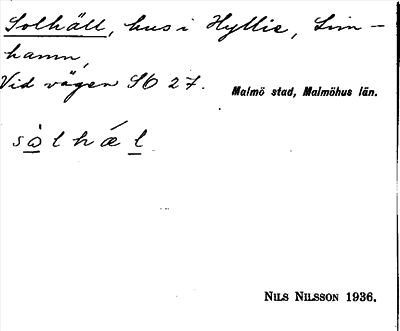 Solhäll, hus i Hyllie, Lim-
hamn,
Vid vägen SO 27.
Malmö stad, Malmöhus län.
sòlhǽl
NILS NILSSON 1936.